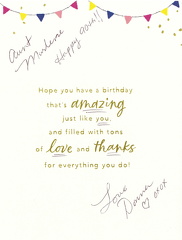 Aunt
Marlene
Happy 90th!!
Hope you have a birthday
that's amazing
just like you,
and filled with tons
of love and thanks
for everything you do!
Love
Donna
♡ xoxo